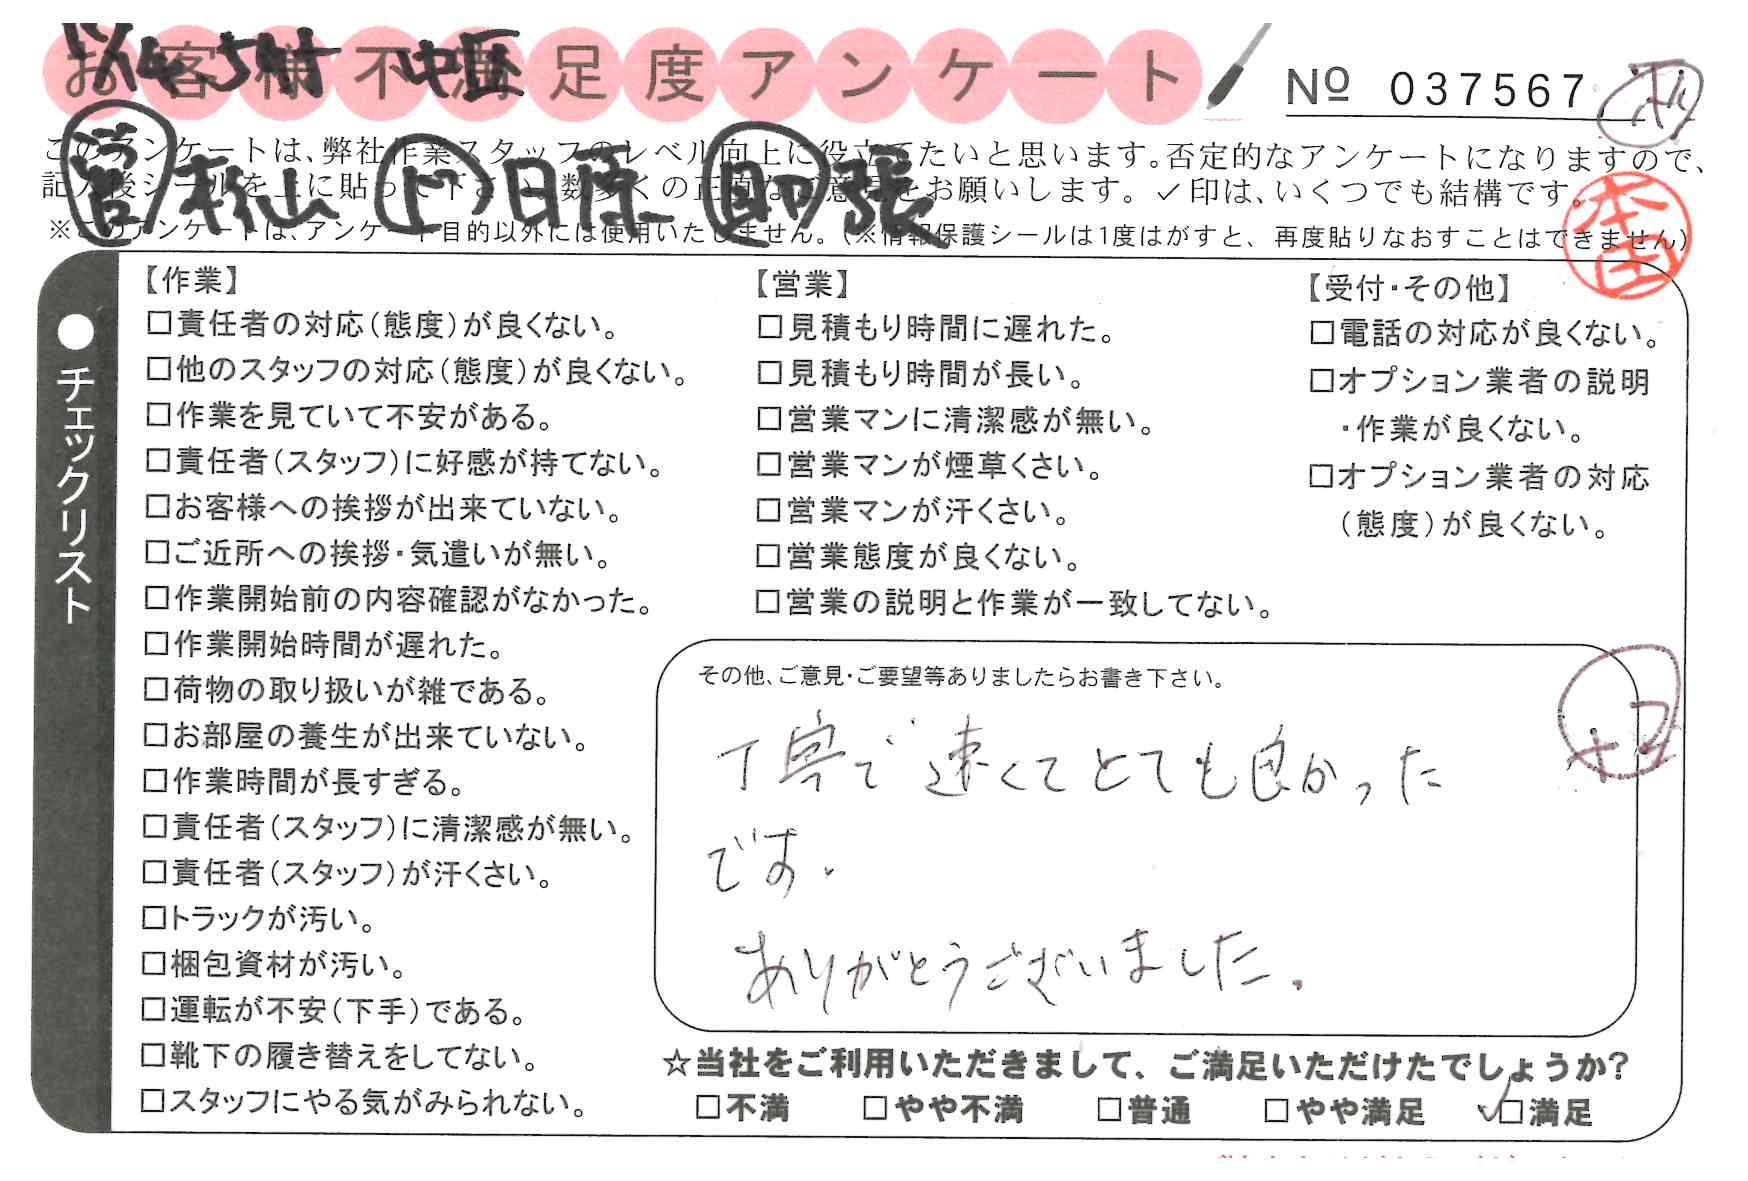 お客様不満足度アンケート
№ 037567
このアンケートは、弊社作業スタッフのレベル向上に役立てたいと思います。否定的なアンケートになりますので、
記入後シールを上に貼って下さい。数多くの正直なご意見をお願いします。✓印は、いくつでも結構です。
※このアンケートは、アンケート目的以外には使用いたしません。(※情報保護シールは1度はがすと、再度貼りなおすことはできません)
営 松山 日原 張
本田
●チェックリスト
【作業】
□責任者の対応(態度)が良くない。
□他のスタッフの対応(態度)が良くない。
□作業を見ていて不安がある。
□責任者(スタッフ)に好感が持てない。
□お客様への挨拶が出来ていない。
□ご近所への挨拶・気遣いが無い。
□作業開始前の内容確認がなかった。
□作業開始時間が遅れた。
□荷物の取り扱いが雑である。
□お部屋の養生が出来ていない。
□作業時間が長すぎる。
□責任者(スタッフ)に清潔感が無い。
□責任者(スタッフ)が汗くさい。
□トラックが汚い。
□梱包資材が汚い。
□運転が不安(下手)である。
□靴下の履き替えをしてない。
□スタッフにやる気がみられない。
【営業】
□見積もり時間に遅れた。
□見積もり時間が長い。
□営業マンに清潔感が無い。
□営業マンが煙草くさい。
□営業マンが汗くさい。
□営業態度が良くない。
□営業の説明と作業が一致してない。
【受付・その他】
□電話の対応が良くない。
□オプション業者の説明
・作業が良くない。
□オプション業者の対応
(態度)が良くない。
その他、ご意見・ご要望等ありましたらお書き下さい。
丁寧で速くてとても良かった
です。
ありがとうございました。
☆当社をご利用いただきまして、ご満足いただけたでしょうか?
□不満 □やや不満 □普通 □やや満足 ✓□満足